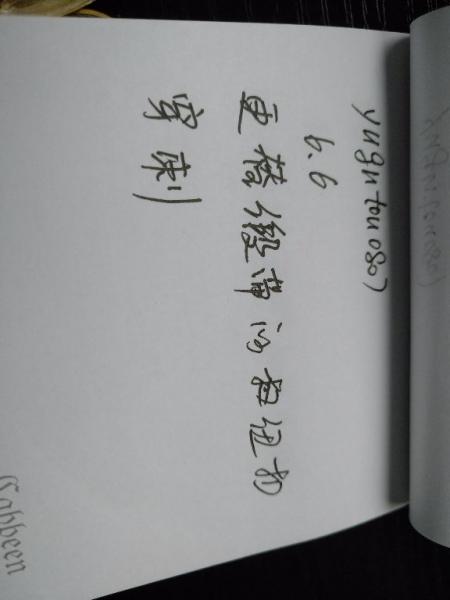 yugutou0807
6.6
更搭缎带的纽扣
穿刺
Cabbeen